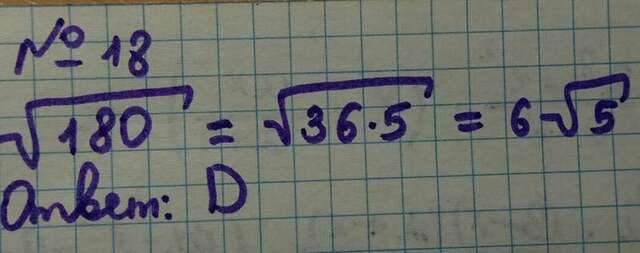 № 18
√180 = √36·5 = 6√5
Ответ: D